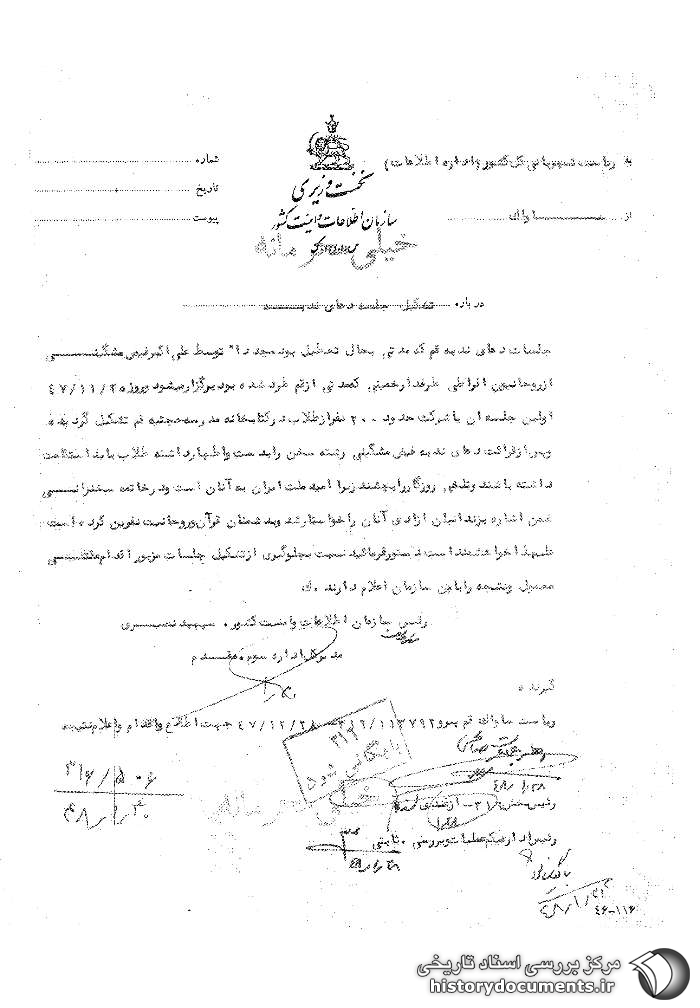 به ریاست شهربانی کل کشور (اداره اطلاعات)
از ساواک
نخست وزیری
سازمان اطلاعات و امنیت کشور
شماره
تاریخ
پیوست
خیلی محرمانه
درباره تشکیل جلسه دعای ندبه
جلسات دعای ندبه قم که مدتی بحال تعطیل بود مجددا" توسط علی اکبر فیض مشگینی
از روحانیون افراطی طرفدار خمینی که مدتی از قم طرد شده بود برگزار میشود و روز ۴۷/۱۱/۲۵
اولین جلسه آن با شرکت حدود ۲۰۰ نفر از طلاب در کتابخانه مدرسه حجتیه قم تشکیل گردیده
و پس از قرائت دعای ندبه فیض مشگینی رشته سخن را بدست و اظهار داشته طلاب باید استقامت
داشته باشند و تلخی روزگار را بچشند زیرا امید ملت ایران به آنان است و در خاتمه سخنرانی
ضمن اشاره بزندانیان آزادی آنان را خواستار شد و بدشمنان قرآن و روحانیت نفرین کرده است
علیهذا خواهشمند است دستور فرمائید نسبت بجلوگیری از تشکیل جلسات مزبور اقدام مقتضی
معمول و نتیجه را باین سازمان اعلام دارند . ک
رئیس سازمان اطلاعات و امنیت کشور . سپهبد نصیری
مدیر کل اداره سوم . مقدم
گیرنده
ریاست ساواک قم پیرو ۳۱۶/۱۱۳۷۹۲ – ۴۷/۱۲/۲۸ جهت اطلاع و اقدام و اعلام نتیجه
۳۱۲
بایگانی شود
۳۱۶/۵۰۶
۴۸/۱/۳۰
خیلی محرمانه
۴۸/۱/۲۸
رئیس بخش ۳۱۶ – ازغندی
رئیس اداره یکم عملیات و بررسی . ثابتی
۴۶-۱۱۶
مرکز بررسی اسناد تاریخی
historydocuments.ir